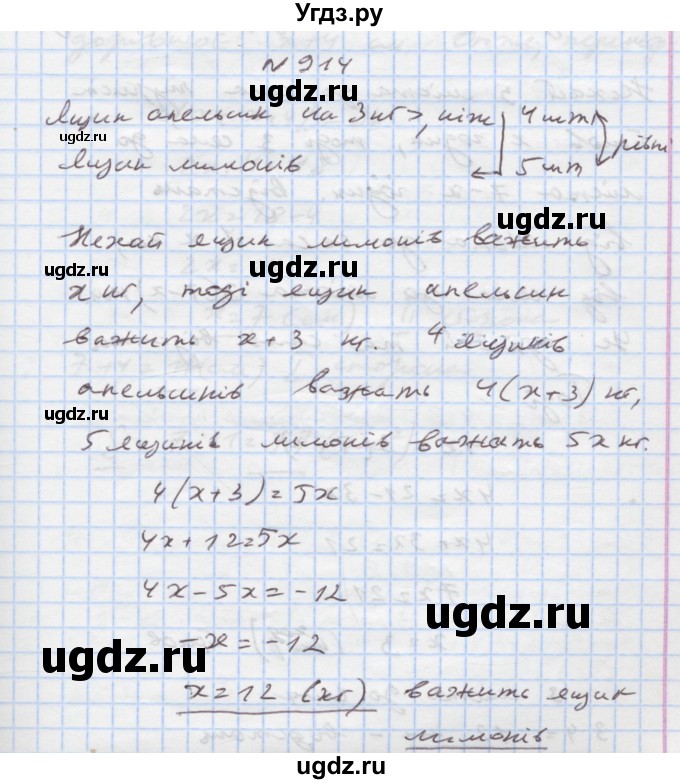 Угдз.ру
N 914
Ящик апельсин на 3 кг >, ніж 4 шт рівні
Ящик лимонів 5 шт
Нехай ящик лимонів важить
x кг, тоді ящик апельсин
важить x+3 кг. 4 ящиків
апельсинів важать 4(x+3) кг,
5 ящиків лимонів важать 5x кг.
4(x+3)=5x
4x+12=5x
4x-5x=-12
-x=-12
x=12 (кг) важить ящик
лимонів
ugdz.ru
ugdz.ru
ugdz.ru
ugdz.ru
ugdz.ru
ugdz.ru
ugdz.ru
ugdz.ru
ugdz.ru
ugdz.ru